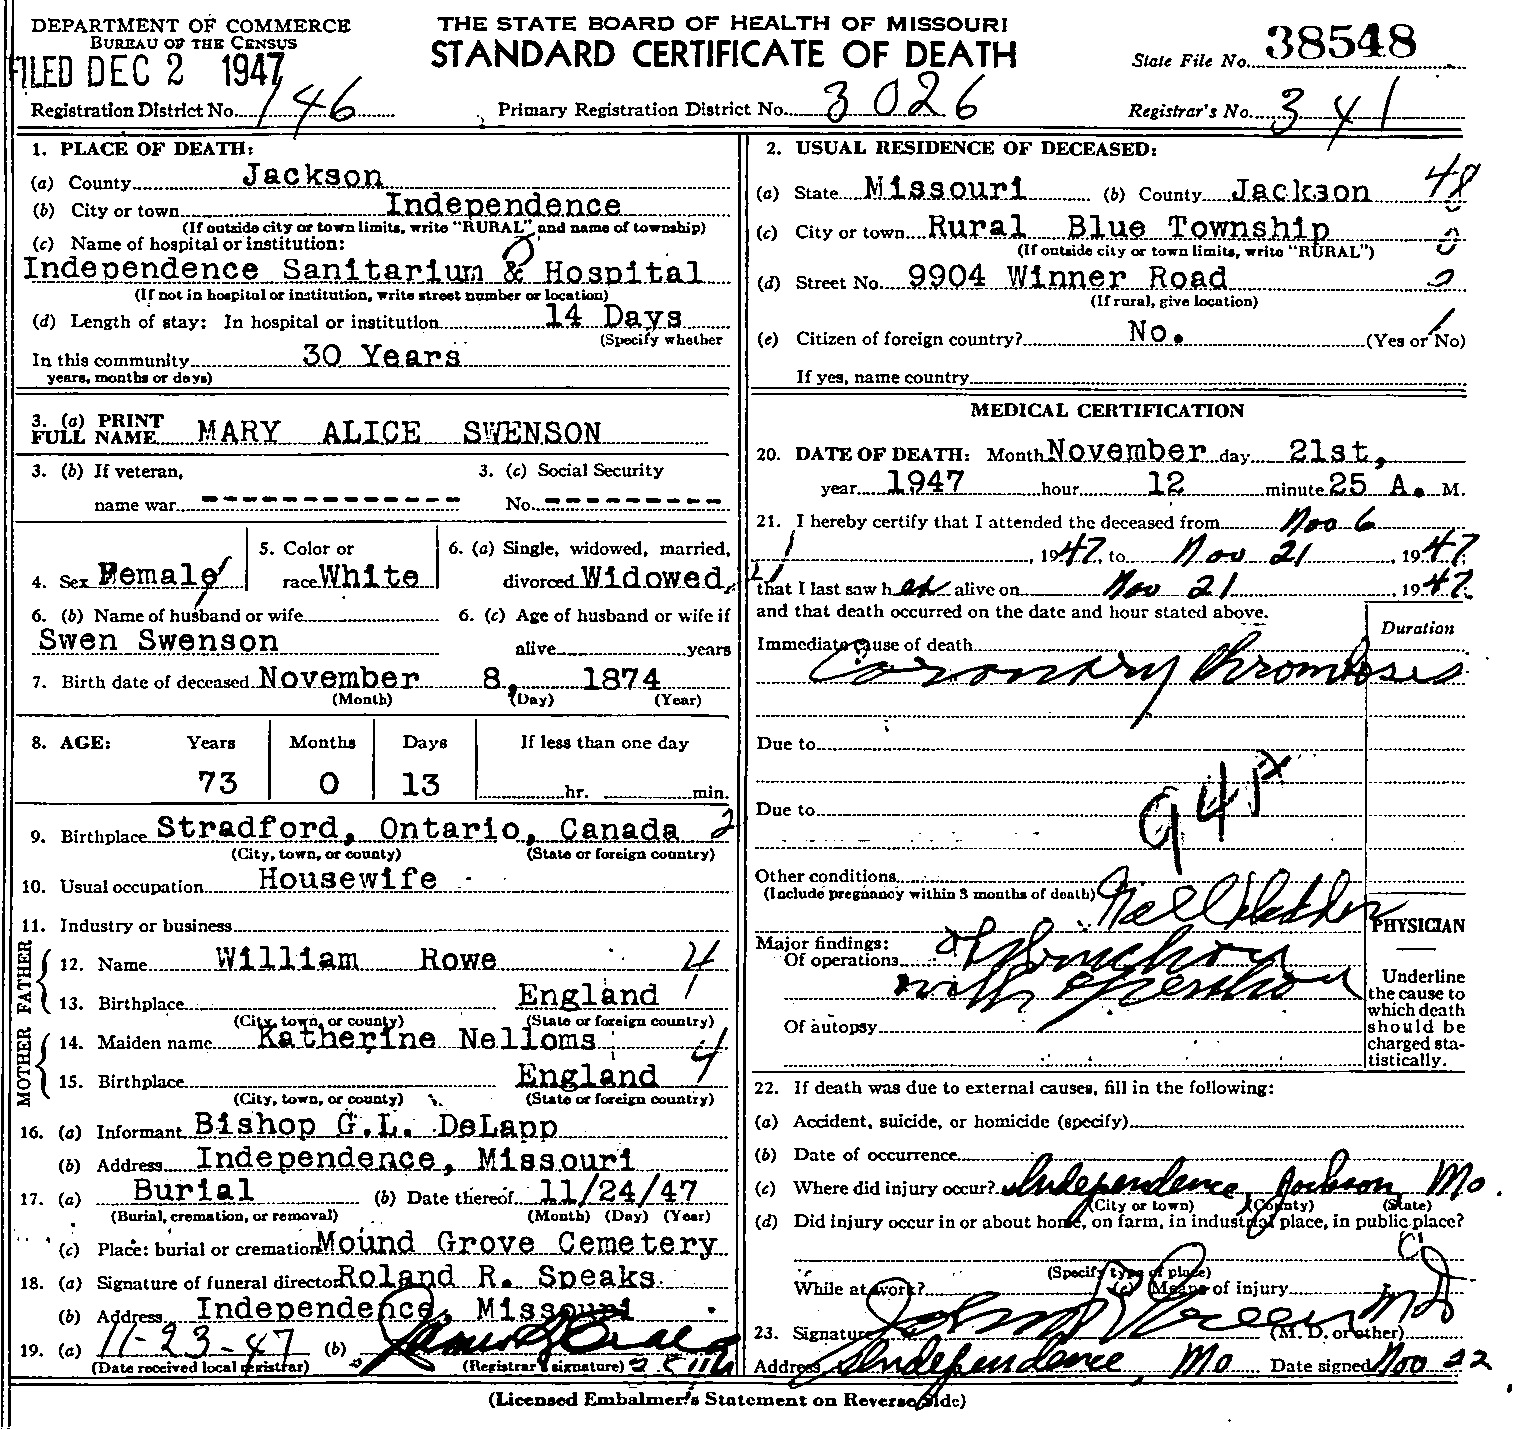 DEPARTMENT OF COMMERCE
BUREAU OF THE CENSUS
FILED DEC 2 1947
THE STATE BOARD OF HEALTH OF MISSOURI
STANDARD CERTIFICATE OF DEATH
State File No. 38548
Registration District No. 146
Primary Registration District No. 3026
Registrar's No. 341
1. PLACE OF DEATH:
(a) County Jackson
(b) City or town Independence
(If outside city or town limits, write "RURAL" and name of township)
(c) Name of hospital or institution:
Independence Sanitarium & Hospital
(If not in hospital or institution, write street number or location)
(d) Length of stay: In hospital or institution 14 Days
(Specify whether
In this community 30 Years
years, months or days)
2. USUAL RESIDENCE OF DECEASED:
(a) State Missouri (b) County Jackson 48
(c) City or town Rural Blue Township
(If outside city or town limits, write "RURAL")
(d) Street No. 9904 Winner Road
(If rural, give location)
(e) Citizen of foreign country? No. (Yes or No)
If yes, name country
3. (a) PRINT
FULL NAME MARY ALICE SWENSON
3. (b) If veteran,
name war
3. (c) Social Security
No.
4. Sex Female
5. Color or
race White
6. (a) Single, widowed, married,
divorced Widowed
6. (b) Name of husband or wife
Swen Swenson
6. (c) Age of husband or wife if
alive years
7. Birth date of deceased November 8, 1874
(Month) (Day) (Year)
8. AGE: Years Months Days If less than one day
73 0 13 hr. min.
9. Birthplace Stradford, Ontario, Canada 2
(City, town, or county) (State or foreign country)
10. Usual occupation Housewife
11. Industry or business
FATHER
12. Name William Rowe 4
13. Birthplace England
(City, town, or county) (State or foreign country)
MOTHER
14. Maiden name Katherine Nelloms
15. Birthplace England 4
(City, town, or county) (State or foreign country)
16. (a) Informant Bishop G.L. DeLapp
(b) Address Independence, Missouri
17. (a) Burial (b) Date thereof 11/24/47
(Burial, cremation, or removal) (Month) (Day) (Year)
(c) Place: burial or cremation Mound Grove Cemetery
18. (a) Signature of funeral director Roland R. Speaks
(b) Address Independence, Missouri
19. (a) 11-23-47 (b)
(Date received local registrar) (Registrar's signature)
MEDICAL CERTIFICATION
20. DATE OF DEATH: Month November day 21st,
year 1947 hour 12 minute 25 A. M.
21. I hereby certify that I attended the deceased from Nov 6
, 1947, to Nov 21, 1947
that I last saw her alive on Nov 21, 1947
and that death occurred on the date and hour stated above.
Immediate cause of death Duration
Coronary thrombosis
Due to
Due to
94
Other conditions
(Include pregnancy within 3 months of death)
Major findings:
Of operations
with operation
Of autopsy
PHYSICIAN
Underline
the cause to
which death
should be
charged sta-
tistically.
22. If death was due to external causes, fill in the following:
(a) Accident, suicide, or homicide (specify)
(b) Date of occurrence
(c) Where did injury occur? Independence, Jackson, Mo.
(City or town) (County) (State)
(d) Did injury occur in or about home, on farm, in industrial place, in public place?
(Specify type of place)
While at work? (e) Means of injury
23. Signature M D
(M. D. or other)
Address Independence, Mo Date signed Nov 22
(Licensed Embalmer's Statement on Reverse Side)